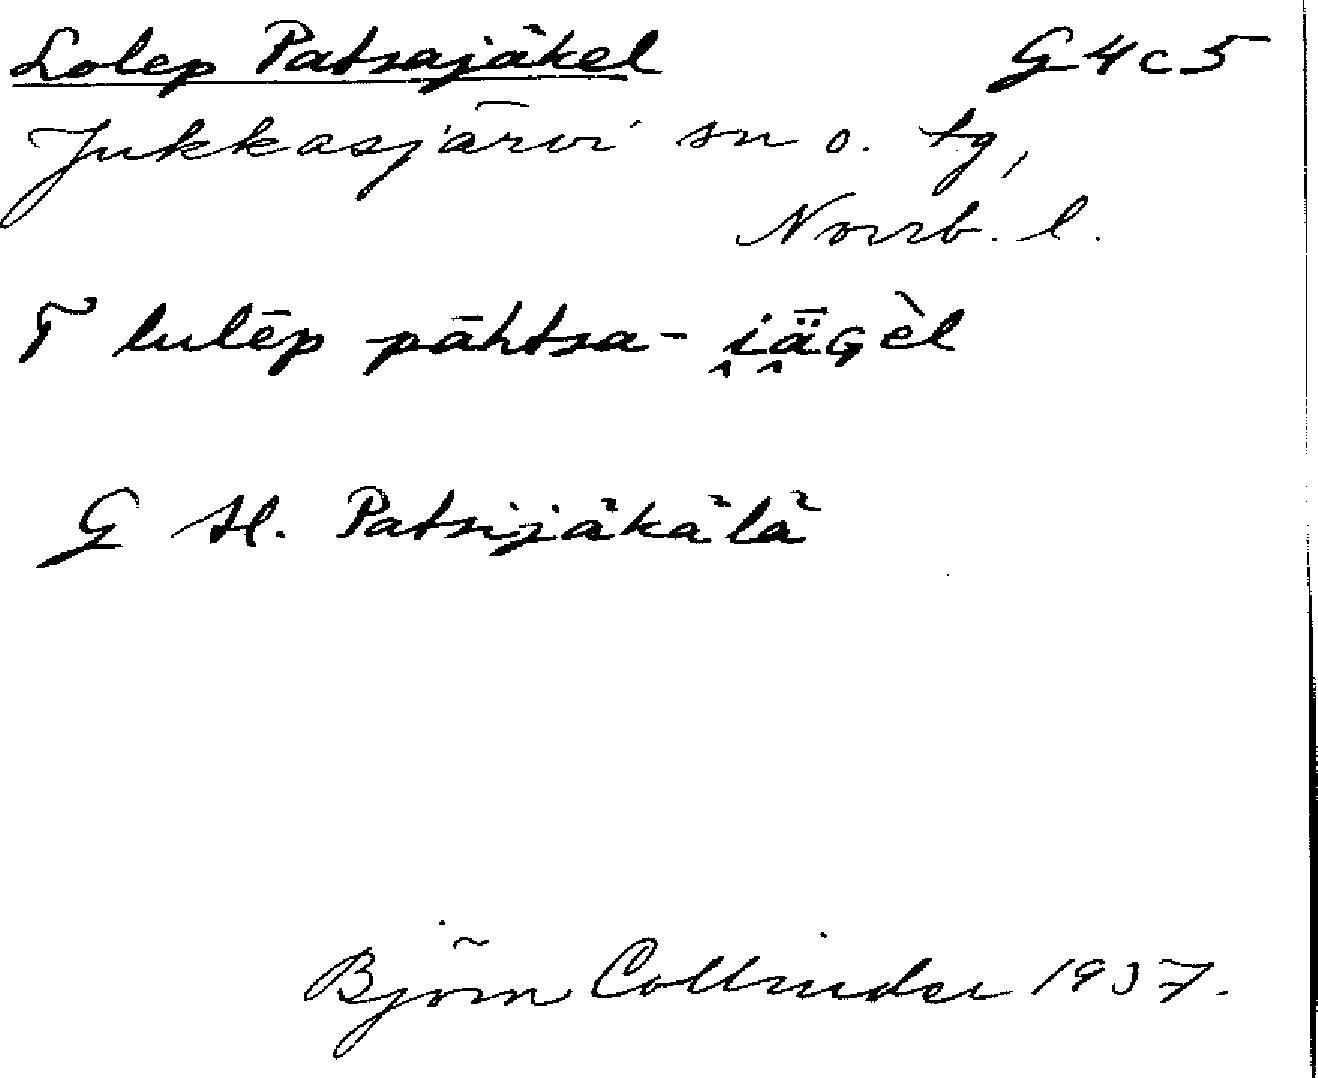 Lolep Patsajäkel G4c5
Jukkasjärvi sn o. tg,
Norrb. l.
T lulēp pāhtsa- i̯ǟ̯ɢèl
G st. Patsijäkälä
Björn Collinder 1937.